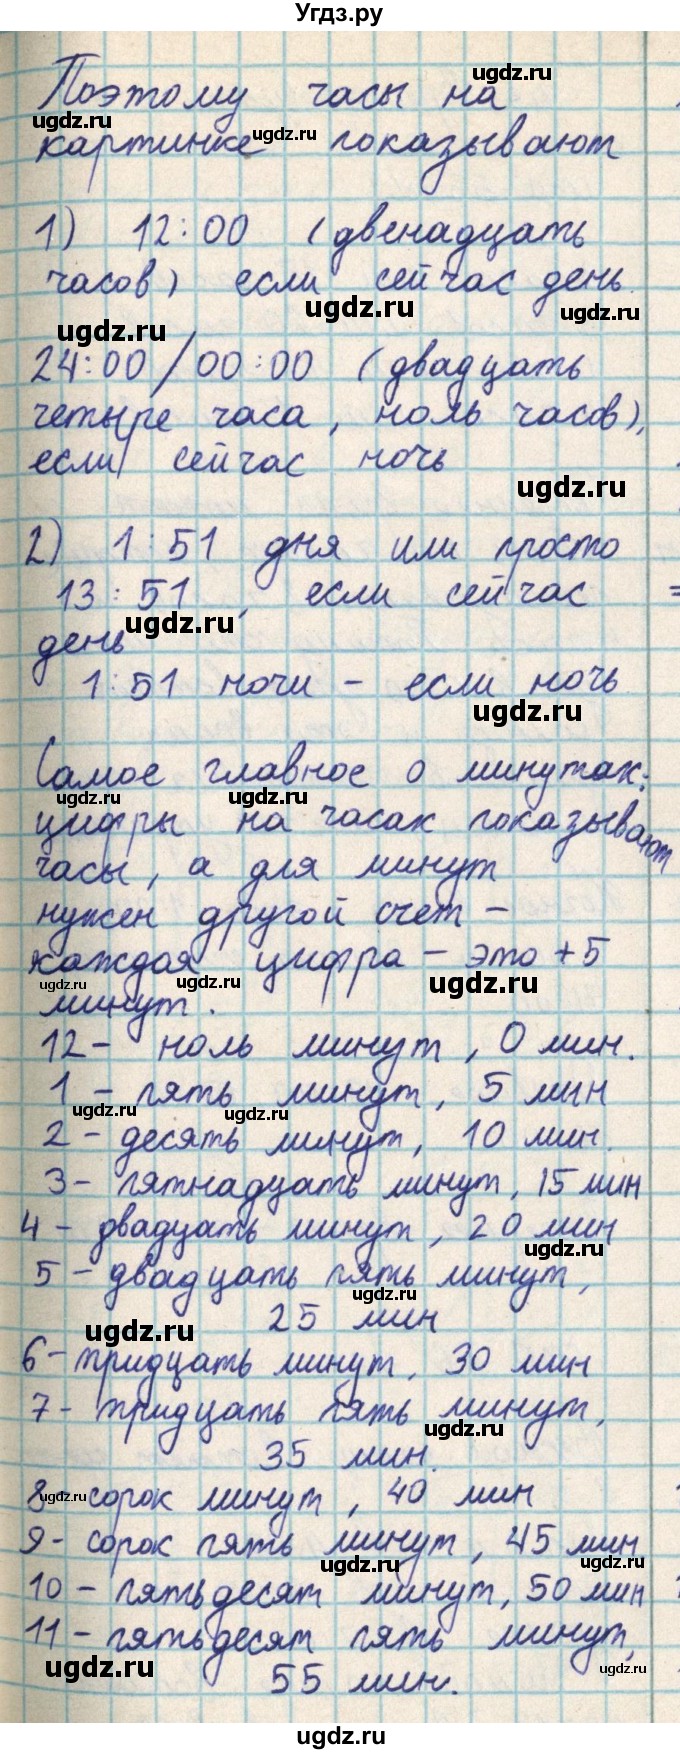 Угдз.ру
Поэтому часы на
картинке показывают
1) 12:00 (двенадцать
часов) если сейчас день
24:00/00:00 (двадцать
четыре часа, ноль часов),
если сейчас ночь
2) 1:51 дня или просто
13:51, если сейчас
день
1:51 ночи - если ночь
Самое главное о минутах:
цифры на часах показывают
часы, а для минут
нужен другой счет -
каждая цифра - это +5
минут.
12 - ноль минут, 0 мин.
1 - пять минут, 5 мин
2 - десять минут, 10 мин.
3 - пятнадцать минут, 15 мин
4 - двадцать минут, 20 мин
5 - двадцать пять минут,
25 мин
6 - тридцать минут, 30 мин
7 - тридцать пять минут,
35 мин.
8 - сорок минут, 40 мин
9 - сорок пять минут, 45 мин
10 - пятьдесят минут, 50 мин
11 - пятьдесят пять минут,
55 мин.
ugdz.ru